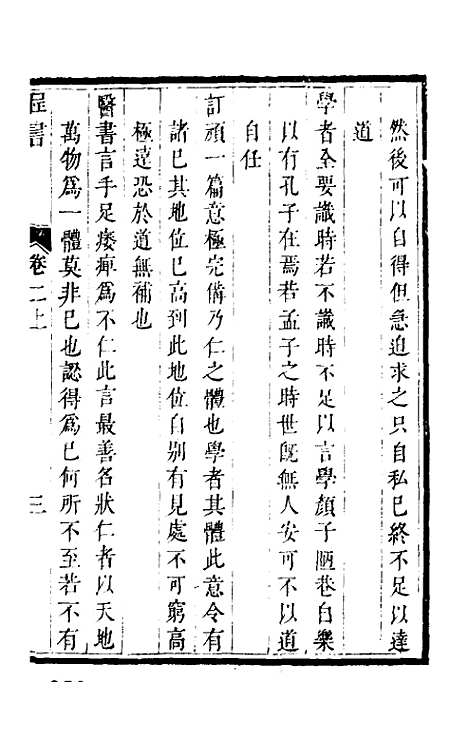 然後可以自得但急迫求之只自私已終不足以達
道
學者全要識時若不識時不足以言學顏子陋巷自樂
以有孔子在焉若孟子之時世旣無人安可不以道
自任
訂頑一篇意極完備乃仁之體也學者其體此意令有
諸己其地位已高到此地位自別有見處不可窮高
極遠恐於道無補也
醫書言手足痿痺爲不仁此言最善名狀仁者以天地
萬物爲一體莫非己也認得爲己何所不至若不有
程書
卷二上
三